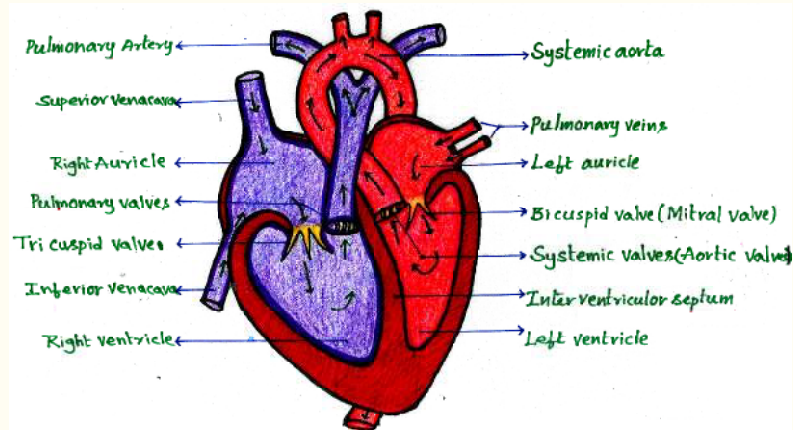 Pulmonary Artery
Superior venacava
Right Auricle
Pulmonary valves
Tri cuspid valves
Inferior venacava
Right ventricle
Systemic aorta
Pulmonary veins
Left auricle
Bicuspid valve (Mitral valve)
Systemic valves (Aortic valve)
Inter ventriculor septum
Left ventricle